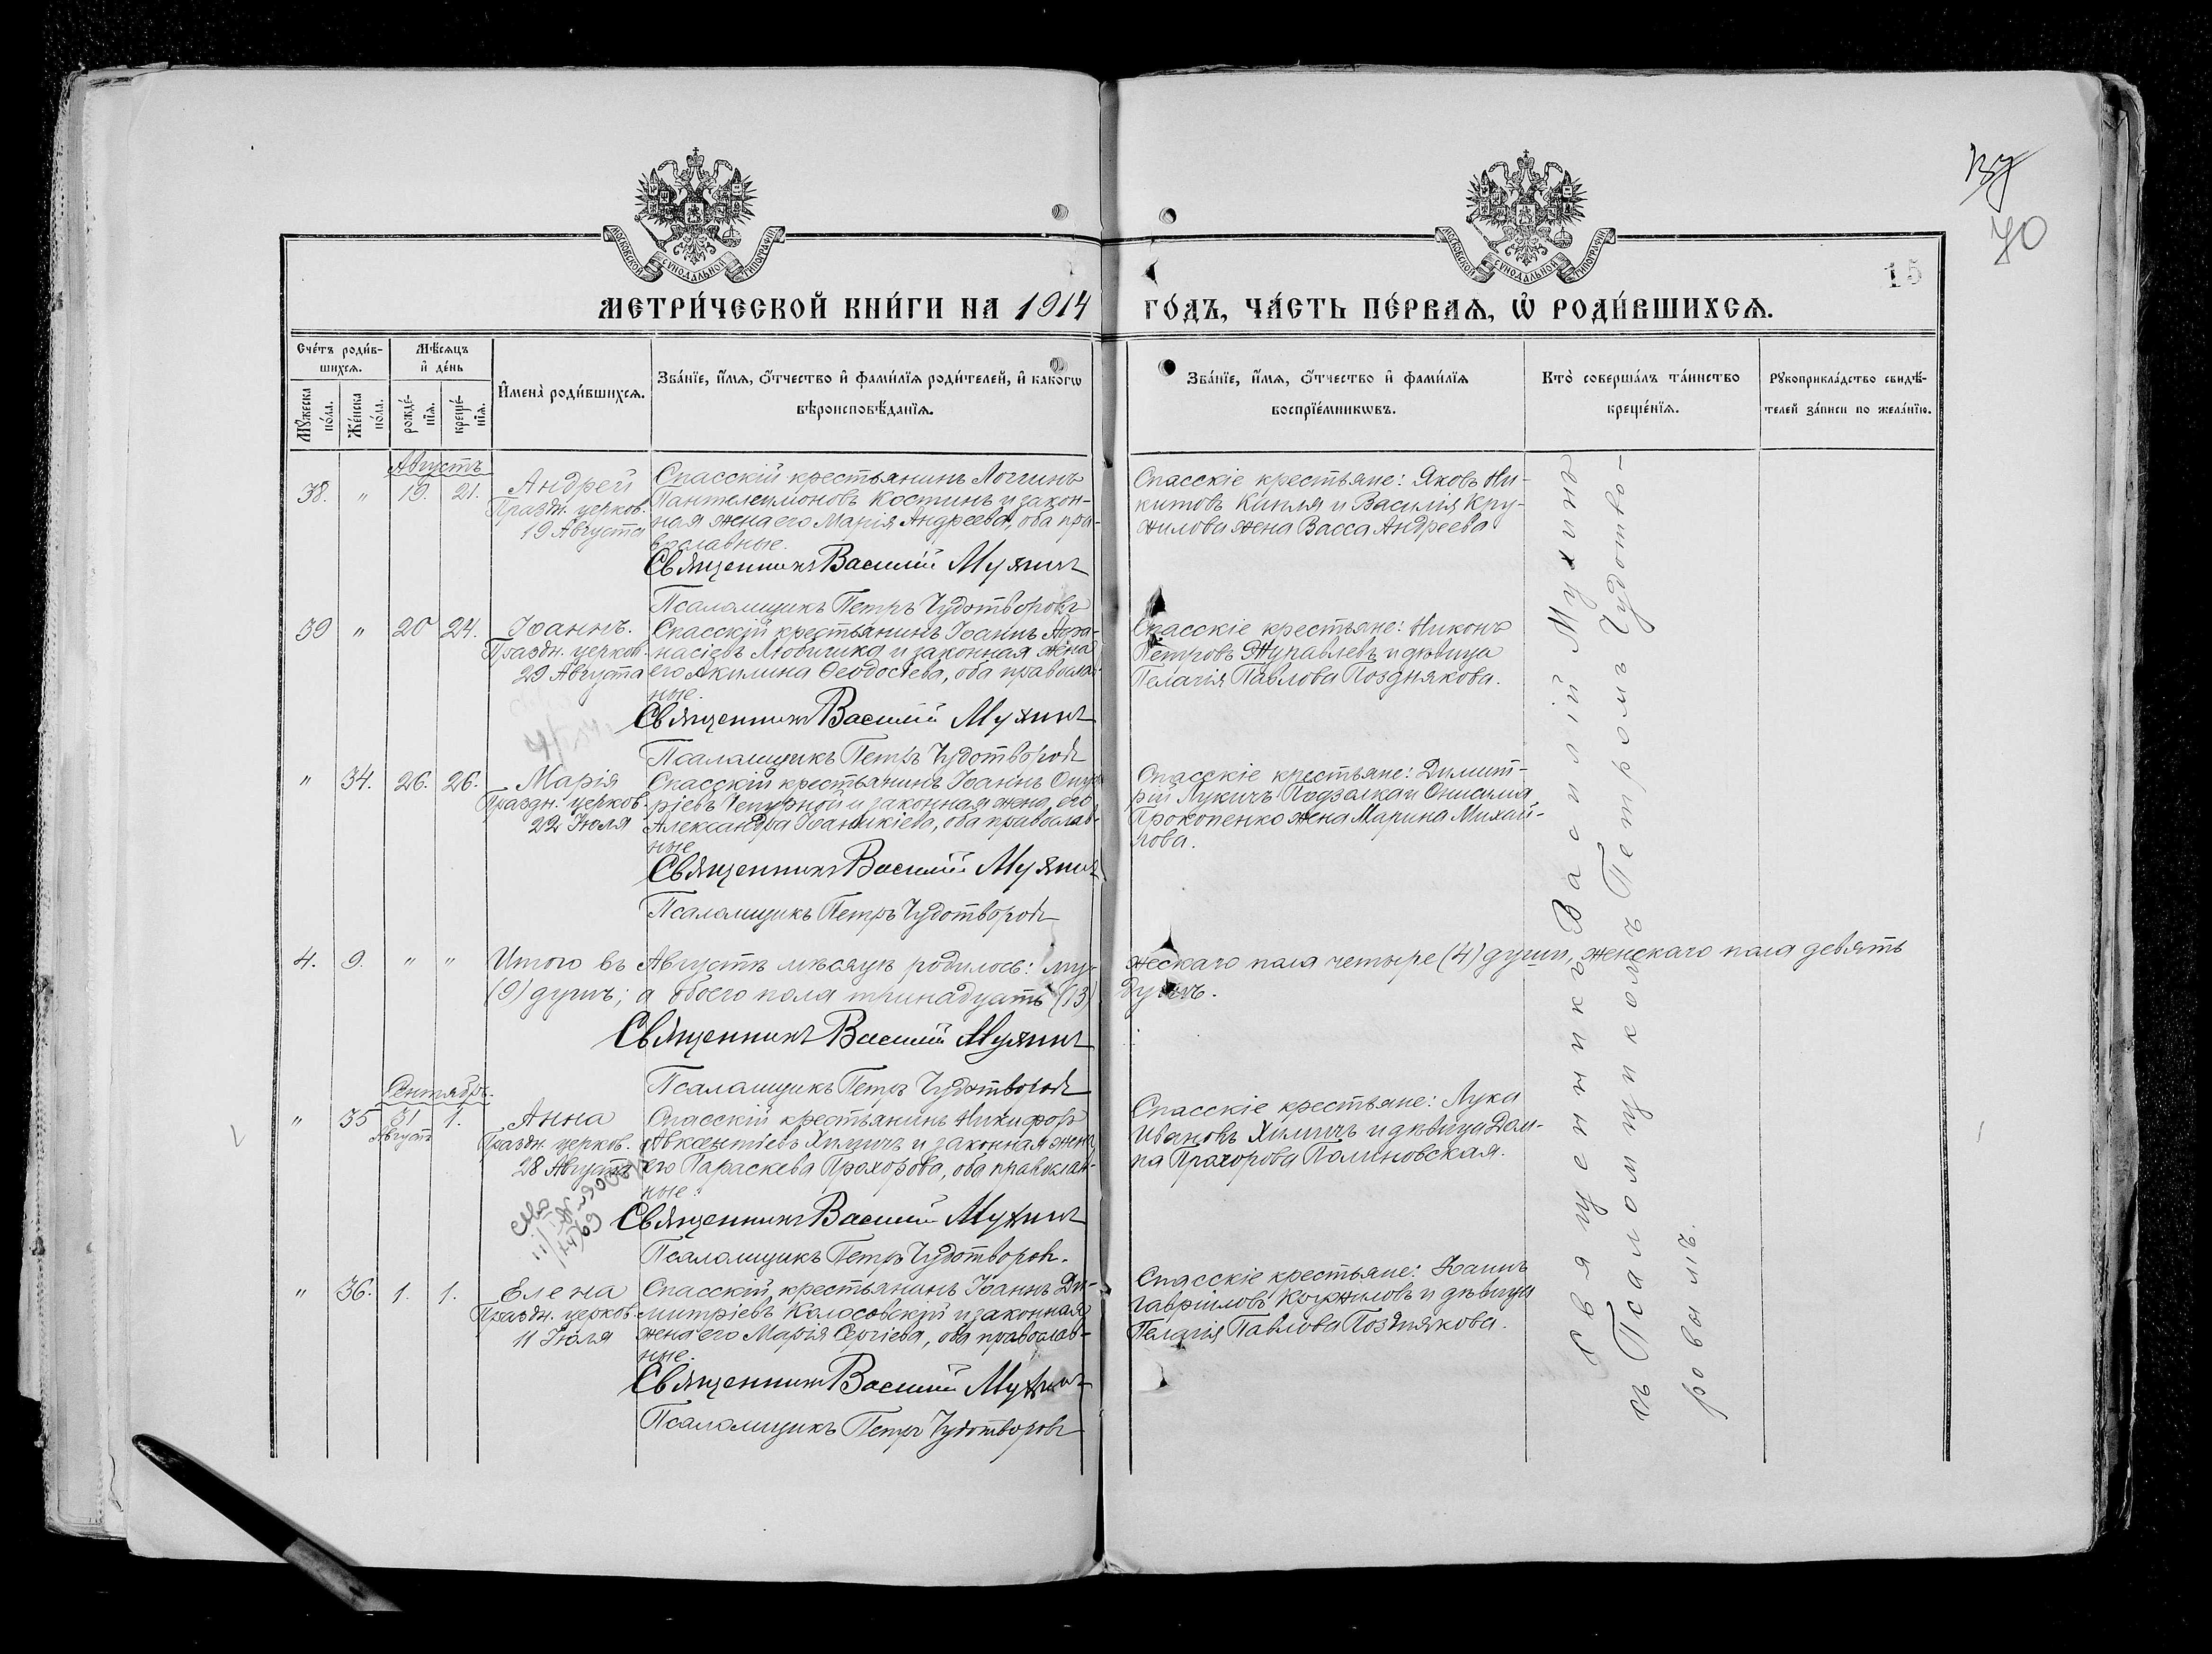 137
70
15
МОСКОВСКОЙ СѴНОДАЛЬНОЙ ТИПОГРАФІИ
МОСКОВСКОЙ СѴНОДАЛЬНОЙ ТИПОГРАФІИ
МЕТРИ́ЧЕСКОЙ КНИ́ГИ НА 1914 ГО́ДЪ, ЧА́СТЬ ПЕ́РВАѦ, Ѡ РОДИ́ВШИХСѦ.
Сче́тъ роди́в-
шихсѧ.
Мꙋ́жеска по́ла.
Же́нска по́ла.
Мѣ́сѧцъ
и҆ де́нь
рожде́-
нїѧ.
креще́-
нїѧ.
И҆мена̀ роди́вшихсѧ.
Зва́нїе, и҆́мѧ, ѻ҆́тчество и҆ фами́лїѧ роди́телей, и҆ како́гѡ
вѣроисповѣ́данїѧ.
Зва́нїе, и҆́мѧ, ѻ҆́тчество и҆ фами́лїѧ
воспрїе́мникѡвъ.
Кто̀ соверша́лъ та́инство
креще́нїѧ.
Рꙋкоприкла́дство свидѣ́-
телей за́писи по жела́нїю.
Августъ
38. " 19. 21. Андрей
Праздн. церков.
19 Августа
Спасскій крестьянинъ Логгинъ
Пантелеимоновъ Костинъ и закон-
ная жена его Марія Андреева, оба пра-
вославные.
Священникъ Василій Мухинъ
Псаломщикъ Петръ Чудотворовъ
Спасскіе крестьяне: Яковъ Ни-
китовъ Кипля и Василія Кру-
жилова жена Васса Андреева
39 " 20 24. Іоаннъ.
Праздн. церков.
29 Августа
Спасскій крестьянинъ Іоаннъ Афа-
насіевъ Любичико и законная жена
его Акилина Ѳеодосіева, оба православ-
ные.
Священникъ Василій Мухинъ
Псаломщикъ Петръ Чудотворовъ
Спасскіе крестьяне: Никонъ
Петровъ Журавлевъ и дѣвица
Пелагія Павлова Позднякова.
" 34. 26. 26. Марія
Праздн. церков.
22 Іюля
Спасскій крестьянинъ Іоаннъ Онуф-
ріевъ Чепурной и законная жена его
Александра Іоанникіева, оба православ-
ные
Священникъ Василій Мухинъ
Псаломщикъ Петръ Чудотворовъ
Спасскіе крестьяне: Димит-
рій Лукичъ Подзалкай Онисима
Прокопенко жена Марина Михай-
лова.
4. 9. " " Итого въ Августѣ мѣсяцѣ родилось: му-
жескаго пола четыре (4) души, женскаго пола девять
(9) душъ; а обоего пола тринадцать (13)
душъ.
Священникъ Василій Мухинъ
Псаломщикъ Петръ Чудотворовъ
Сентябрь.
" 35 31 Августъ 1. Анна
Праздн. церков.
28 Августа
Спасскій крестьянинъ Никифоръ
Авксентіевъ Химичъ и законная жена
его Параскева Прохорова, оба православ-
ные.
Священникъ Василій Мухинъ
Псаломщикъ Петръ Чудотворовъ.
Спасскіе крестьяне: Лука
Ивановъ Химичъ и дѣвица Дом-
на Прохорова Полиновская.
" 36. 1. 1. Елена
Праздн. церков.
11 Іюля
Спасскій крестьянинъ Іоаннъ Ди-
митріевъ Колосовскій и законная
жена его Марія Сергіева, оба православ-
ные.
Священникъ Василій Мухинъ
Псаломщикъ Петръ Чудотворовъ
Спасскіе крестьяне: Іоаннъ
Гавріиловъ Коржиловъ и дѣвица
Пелагія Павлова Позднякова.
Священникъ Василій Мухинъ
съ Псаломщикомъ Петромъ Чудотво-
ровымъ.